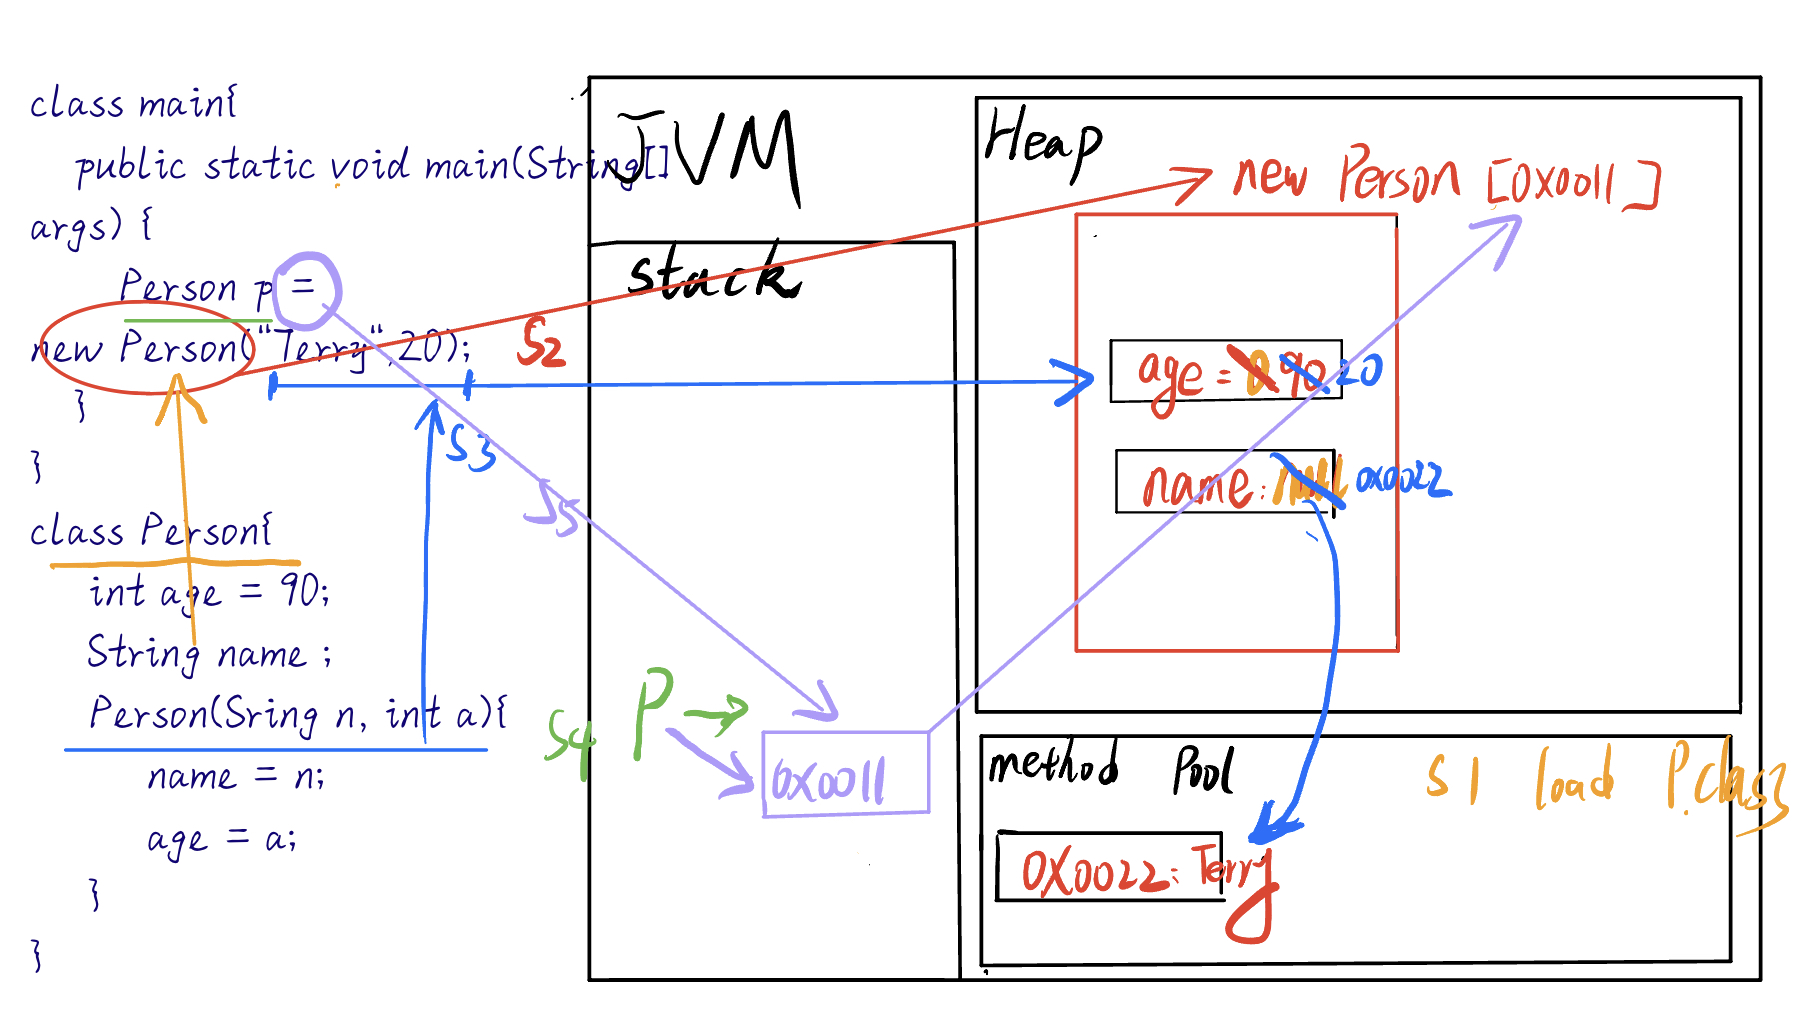 class main{
public static void main(String[]
args) {
Person p =
new Person("Terry",20);
}
}
class Person{
int age = 90;
String name ;
Person(Sring n, int a){
name = n;
age = a;
}
}
JVM
stack
S2
S3
S5
S4
P
0x0011
Heap
new Person [0x0011]
age = 0 90 20
name: null 0x0022
method Pool
S1 load P.class
0x0022: Terry